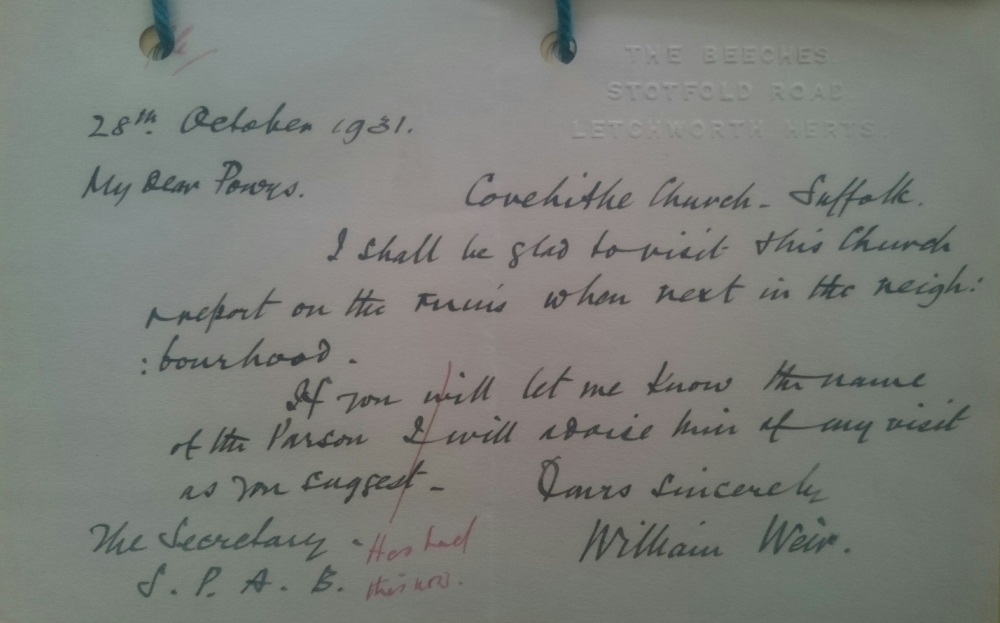 THE BEECHES.
STOTFOLD ROAD.
LETCHWORTH HERTS.
28th. October 1931.
My Dear Powys.
Covehithe Church - Suffolk.
I shall be glad to visit this Church
& report on the ruins when next in the neigh:
:bourhood.
If you will let me know the name
of the Parson I will advise him of my visit
as you suggest -
Yours sincerely
William Weir.
The Secretary -
S. P. A. B.
Has had
this now.